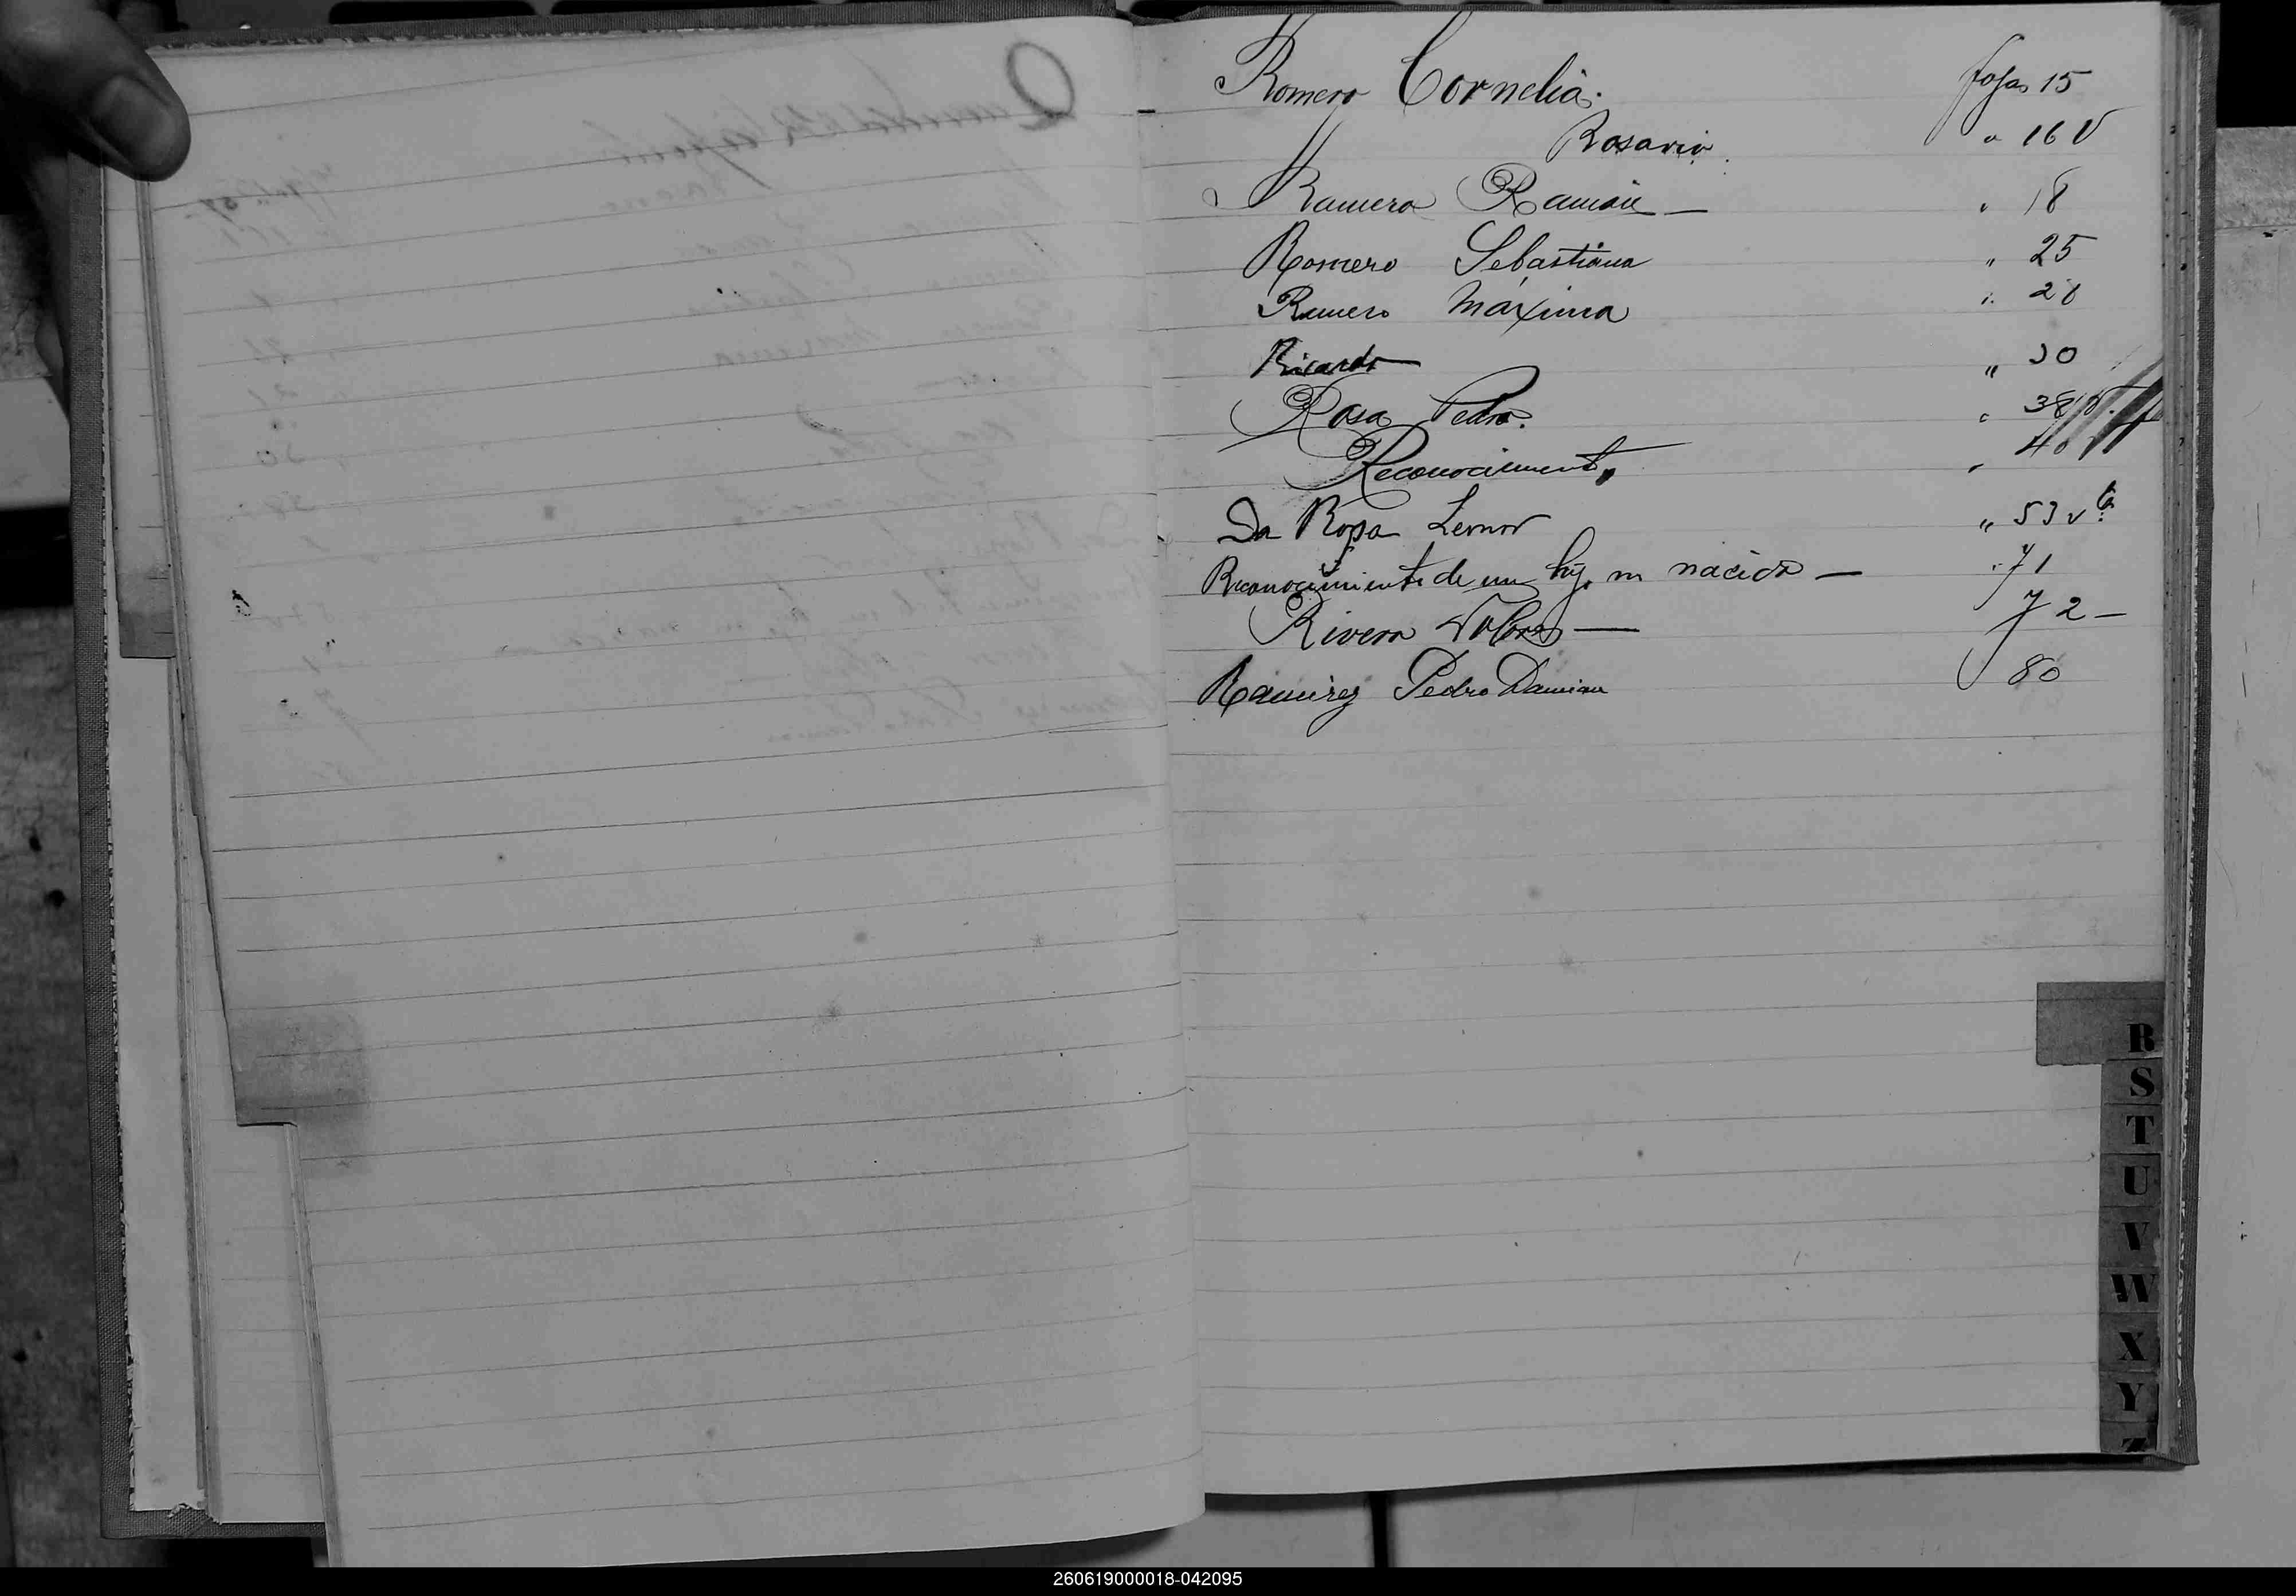 Romero Cornelia. fojas 15
" Rosario. " 16 V
Romero Ramón — " 18
Romero Sebastiana " 25
Romero Máxima " 28
Ricardo " 30
Rosa Pedro. " 38
Reconocimiento " 40
Da Rosa Leonor " 53 vta
Reconocimiento de un hijo m nacido — " 71
Rivero Dolores — 72 —
Ramirez Pedro Damian 80
R
S
T
U
V
W
X
Y
Z
260619000018-042095